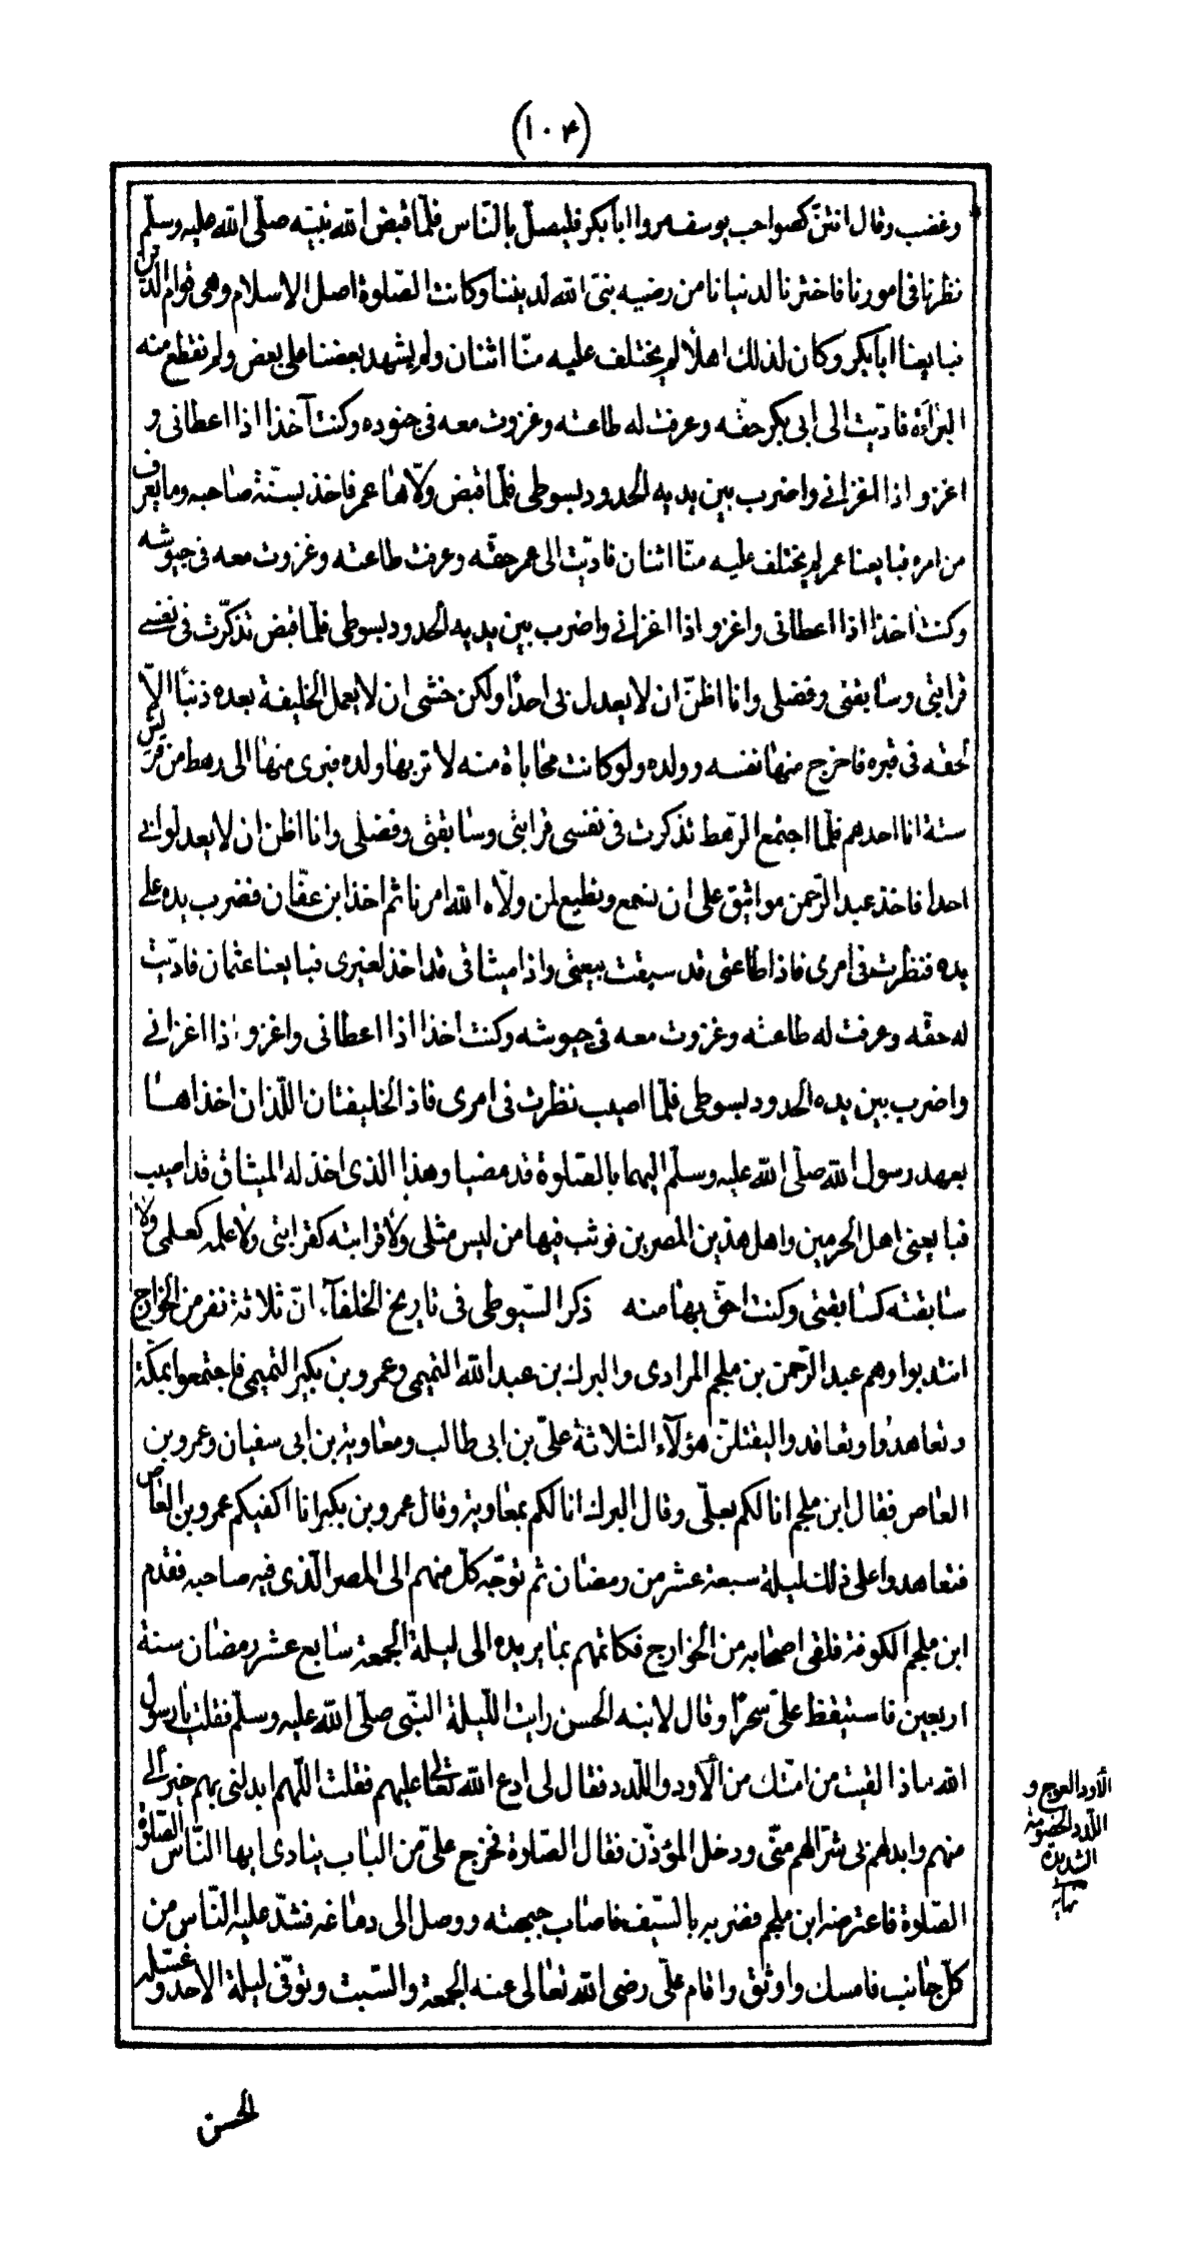 (۱۰۴)
وغضب وقال انتنّ كصواحب يوسف مروا ابابكر فليصلّ بالنّاس فلمّا قبض الله نبيّه صلّى الله عليه وسلّم
نظرنا فى امورنا فاخترنا لدنيانا من رضيه نبىّ الله لديننا وكانت الصّلوة اصل الاسلام وهى قوام الدّين
فبايعنا ابابكر وكان لذلك اهلًا لم يختلف عليه منّا اثنان ولم يشهد بعضنا على بعض ولم نقطع منه
البرآءة فادّيت الى ابى بكر حقّه وعرفت له طاعته وغزوت معه فى جنوده وكنت آخذ اذا اعطانى و
اغزو اذا اغزانى واضرب بين يديه الحدود بسوطى فلمّا قبض ولّاها عمر فاخذ بسنّة صاحبه وما يعرف
من امره فبايعنا عمر لم يختلف عليه منّا اثنان فادّيت الى عمر حقّه وعرفت طاعته وغزوت معه فى جيوشه
وكنت اخذ اذا اعطانى واغزو اذا اغزانى واضرب بين يديه الحدود بسوطى فلمّا قبض تذكّرت فى نفسى
قرابتى وسابقتى وفضلى وانا اظنّ ان لا يعدل بى احدًا ولكن خشى ان لا يعمل الخليفة بعده ذنبًا الّا
لحقه فى قبره فاخرج منها نفسه وولده ولو كانت محاباة منه لاثر بها ولده فبرى منها الى رهط من قريش
ستة انا احدهم فلمّا اجتمع الرّهط تذكرت فى نفسى قرابتى وسابقتى وفضلى وانا اظن ان لا يعدلوا بى
احدا فاخذ عبد الرّحمن مواثيق على ان نسمع ونطيع لمن ولّاه الله امرنا ثم اخذ ابن عفّان فضرب يده على
يده فنظرت فى امرى فاذا طاعتى قد سبقت بيعتى واذا ميثاقى قد اخذ لغيرى فبايعنا عثمان فادّيت
له حقّه وعرفت له طاعته وغزوت معه فى جيوشه وكنت أخذ اذا اعطانى واغزو اذا اغزانى
واضرب بين يده الحدود بسوطى فلمّا اصيب نظرت فى امرى فاذ الخليفتان اللّذان اخذاها
بعهد رسول الله صلّى الله عليه وسلّم اليهما بالصّلوة قد مضيا وهذا الذى اخذ له الميثاق قد اصيب
فبايعنى اهل الحرمين واهل هذين المصرين فوثب فيها من ليس مثلى ولا قرابته كقرابتى ولا علمه كعلمى ولا
سابقته كسابقتى وكنت احقّ بها منه ذكر السّيوطى فى تاريخ الخلفآء انّ ثلاثة نفر من الخوارج
انتدبوا وهم عبد الرّحمن بن ملجم المرادى والبرك بن عبد الله التميمى وعمرو بن بكير التميمى فاجتمعوا بمكّة
وتعاهدوا وتعاقدوا ليقتلنّ هؤلآء الثلاثة علىّ بن ابى طالب ومعاوية بن ابى سفيان وعمرو بن
العاص فقال ابن ملجم انا لكم بعلىّ وقال البرك انا لكم بمعاوية وقال عمرو بن بكير انا اكفيكم عمرو بن العاص
فتعاهدوا على ذلك ليلة سبعة عشر من رمضان ثم توجّه كلّ منهم الى المصر الّذى فيه صاحبه فقدم
ابن ملجم الكوفة فلقى اصحابه من الخوارج فكاتمهم بما يريده الى ليلة الجمعة سابع عشر رمضان سنة
اربعين فاستيقظ علىّ سحرًا وقال لابنه الحسن رايت اللّيلة النّبى صلّى الله عليه وسلّم فقلت يا رسول
الله ماذا لقيت من امّتك من الأود واللّدد فقال لى ادع الله تعالى عليهم فقلت اللّهم ابدلنى بهم خيرًا لى
منهم وابدلهم بى شرّا لهم منّى ودخل المؤذّن فقال الصّلوة فخرج علىّ من الباب ينادى ايها النّاس الصّلوة
الصّلوة فاعترضه ابن ملجم فضربه بالسّيف فاصاب جبهته ووصل الى دماغه فشدّ عليه النّاس من
كلّ جانب فامسك واوثق واقام علىّ رضى الله تعالى عنه الجمعة والسّبت وتوفّى ليلة الاحد وغسّله
الأود العوج و
اللّدد الخصومة
الشديدة
نهاية
الحسن